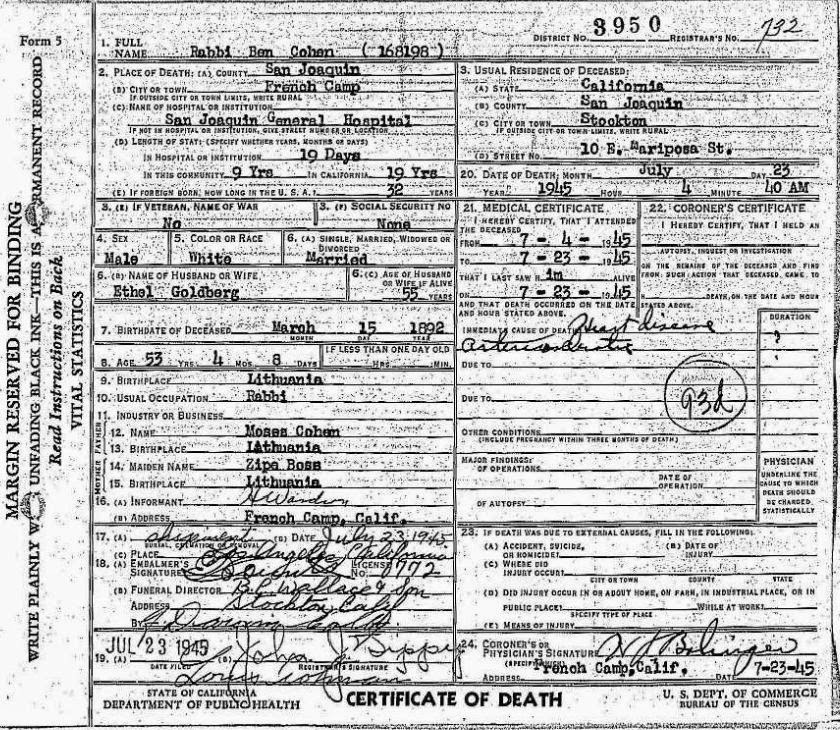 Form 5
MARGIN RESERVED FOR BINDING
WRITE PLAINLY W UNFADING BLACK INK—THIS IS A RMANENT RECORD
Read Instructions on Back
VITAL STATISTICS
DISTRICT NO. 3950 REGISTRAR'S NO. 732
1. FULL NAME Rabbi Ben Cohen (168198)
2. PLACE OF DEATH: (A) COUNTY San Joaquin
(B) CITY OR TOWN French Camp
IF OUTSIDE CITY OR TOWN LIMITS, WRITE RURAL
(C) NAME OF HOSPITAL OR INSTITUTION
San Joaquin General Hospital
IF NOT IN HOSPITAL OR INSTITUTION, GIVE STREET NUMBER OR LOCATION
(D) LENGTH OF STAY: (SPECIFY WHETHER YEARS, MONTHS OR DAYS)
IN HOSPITAL OR INSTITUTION 19 Days
IN THIS COMMUNITY 9 Yrs IN CALIFORNIA 19 Yrs
(E) IF FOREIGN BORN, HOW LONG IN THE U. S. A.? 32 YEARS
3. (E) IF VETERAN, NAME OF WAR No
3. (F) SOCIAL SECURITY NO None
4. SEX Male
5. COLOR OR RACE White
6. (A) SINGLE, MARRIED, WIDOWED OR DIVORCED Married
6. (B) NAME OF HUSBAND OR WIFE Ethel Goldberg
6. (C) AGE OF HUSBAND OR WIFE IF ALIVE 55 YEARS
7. BIRTHDATE OF DECEASED March 15 1892
MONTH DAY YEAR
8. AGE 53 YRS. 4 MOS. 8 DAYS IF LESS THAN ONE DAY OLD HRS. MIN.
9. BIRTHPLACE Lithuania
10. USUAL OCCUPATION Rabbi
11. INDUSTRY OR BUSINESS
FATHER
12. NAME Moses Cohen
13. BIRTHPLACE Lithuania
MOTHER
14. MAIDEN NAME Zipa Boss
15. BIRTHPLACE Lithuania
16. (A) INFORMANT
(B) ADDRESS French Camp, Calif.
17. (A) shipment (B) DATE July 23, 1945
BURIAL, CREMATION OR REMOVAL
(C) PLACE Los Angeles, California
18. (A) EMBALMER'S SIGNATURE LICENSE NO. 1772
(B) FUNERAL DIRECTOR B.C. Wallace & Son
ADDRESS Stockton, Calif
BY
19. (A) JUL 23 1945 (B) John J. Sippy
DATE FILED REGISTRAR'S SIGNATURE
3. USUAL RESIDENCE OF DECEASED:
(A) STATE California
(B) COUNTY San Joaquin
(C) CITY OR TOWN Stockton
IF OUTSIDE CITY OR TOWN LIMITS, WRITE RURAL
(D) STREET NO. 10 E. Mariposa St.
20. DATE OF DEATH: MONTH July DAY 23
YEAR 1945 HOUR 4 MINUTE 40 AM
21. MEDICAL CERTIFICATE
I HEREBY CERTIFY, THAT I ATTENDED THE DECEASED
FROM 7 - 4 - 1945
TO 7 - 23 - 1945
THAT I LAST SAW H im ALIVE
ON 7 - 23 - 1945
AND THAT DEATH OCCURRED ON THE DATE AND HOUR STATED ABOVE.
22. CORONER'S CERTIFICATE
I HEREBY CERTIFY, THAT I HELD AN
AUTOPSY, INQUEST OR INVESTIGATION
ON THE REMAINS OF THE DECEASED AND FIND FROM SUCH ACTION THAT DECEASED CAME TO
DEATH, ON THE DATE AND HOUR STATED ABOVE.
IMMEDIATE CAUSE OF DEATH Heart disease
DURATION
DUE TO
DUE TO
93d
OTHER CONDITIONS
(INCLUDE PREGNANCY WITHIN THREE MONTHS OF DEATH)
MAJOR FINDINGS:
OF OPERATIONS
DATE OF OPERATION
OF AUTOPSY
PHYSICIAN
UNDERLINE THE CAUSE TO WHICH DEATH SHOULD BE CHARGED STATISTICALLY
23. IF DEATH WAS DUE TO EXTERNAL CAUSES, FILL IN THE FOLLOWING:
(A) ACCIDENT, SUICIDE, OR HOMICIDE! (B) DATE OF INJURY
(C) WHERE DID INJURY OCCUR?
CITY OR TOWN COUNTY STATE
(D) DID INJURY OCCUR IN OR ABOUT HOME, ON FARM, IN INDUSTRIAL PLACE, OR IN
PUBLIC PLACE? WHILE AT WORK?
SPECIFY TYPE OF PLACE
(E) MEANS OF INJURY
24. CORONER'S OR PHYSICIAN'S SIGNATURE
(SPECIFY WHICH)
ADDRESS French Camp, Calif. DATE 7-23-45
STATE OF CALIFORNIA
DEPARTMENT OF PUBLIC HEALTH
CERTIFICATE OF DEATH
U. S. DEPT. OF COMMERCE
BUREAU OF THE CENSUS